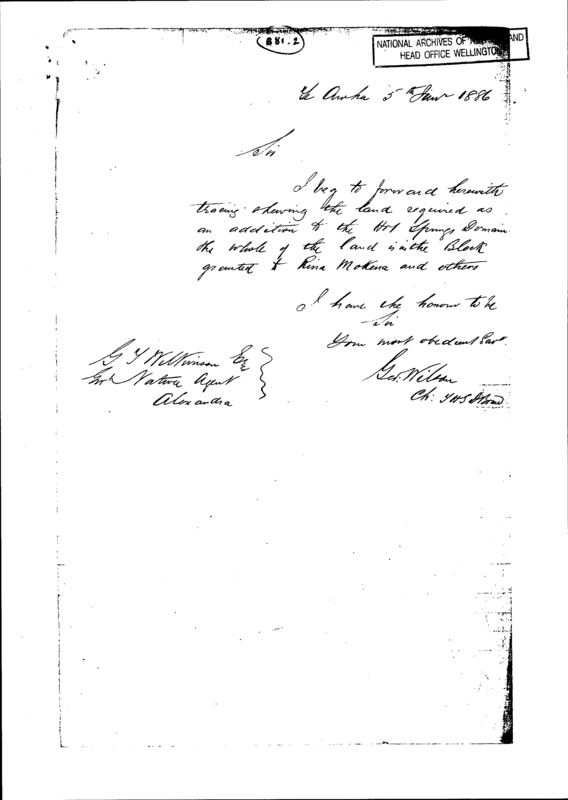 B81.2
NATIONAL ARCHIVES OF AND
HEAD OFFICE WELLINGTON
Te Aroha 5th Jany 1886
Sir
I beg to forward herewith
tracing shewing the land required as
an addition to the Hot Springs Domain
the whole of the land is in the Block
granted to Rina Mokena and others
I have the honour to be
Sir
Your most obedient Servt.
G T Wilkinson Esq
Native Agent
Alexandra
Geo. Wilson
Ch: